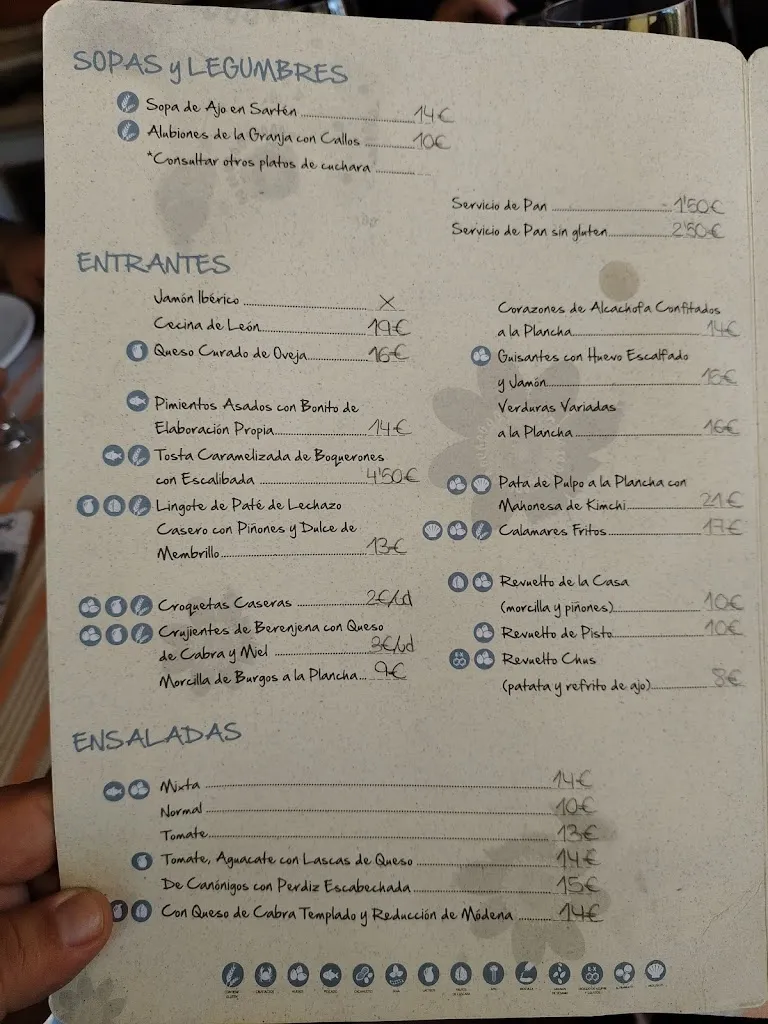 SOPAS y LEGUMBRES
Sopa de Ajo en Sartén 14€
Alubiones de la Granja con Callos 10€
*Consultar otros platos de cuchara
Servicio de Pan 1'50€
Servicio de Pan sin gluten 2'50€
ENTRANTES
Jamón Ibérico X
Cecina de León 19€
Queso Curado de Oveja 16€
Pimientos Asados con Bonito de
Elaboración Propia 14€
Tosta Caramelizada de Boquerones
con Escalibada 4'50€
Lingote de Paté de Lechazo
Casero con Piñones y Dulce de
Membrillo 13€
Croquetas Caseras 2€/ud
Crujientes de Berenjena con Queso
de Cabra y Miel 3€/ud
Morcilla de Burgos a la Plancha 9€
Corazones de Alcachofa Confitados
a la Plancha 14€
Guisantes con Huevo Escalfado
y Jamón 15€
Verduras Variadas
a la Plancha 16€
Pata de Pulpo a la Plancha con
Mahonesa de Kimchi 21€
Calamares Fritos 17€
Revuelto de la Casa
(morcilla y piñones) 10€
Revuelto de Pisto 10€
Revuelto Chus
(patata y refrito de ajo) 8€
ENSALADAS
Mixta 14€
Normal 10€
Tomate 13€
Tomate, Aguacate con Lascas de Queso 14€
De Canónigos con Perdiz Escabechada 15€
Con Queso de Cabra Templado y Reducción de Módena 14€